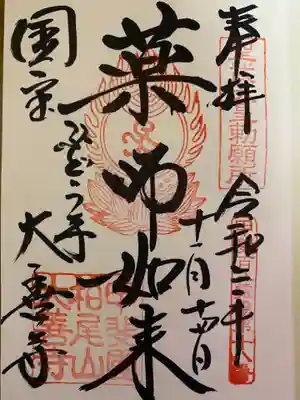 奉拝
令和二年
十一月十四日
薬師如来
国宝
ぶどう寺
大善寺
甲斐国
柏尾山
大善寺